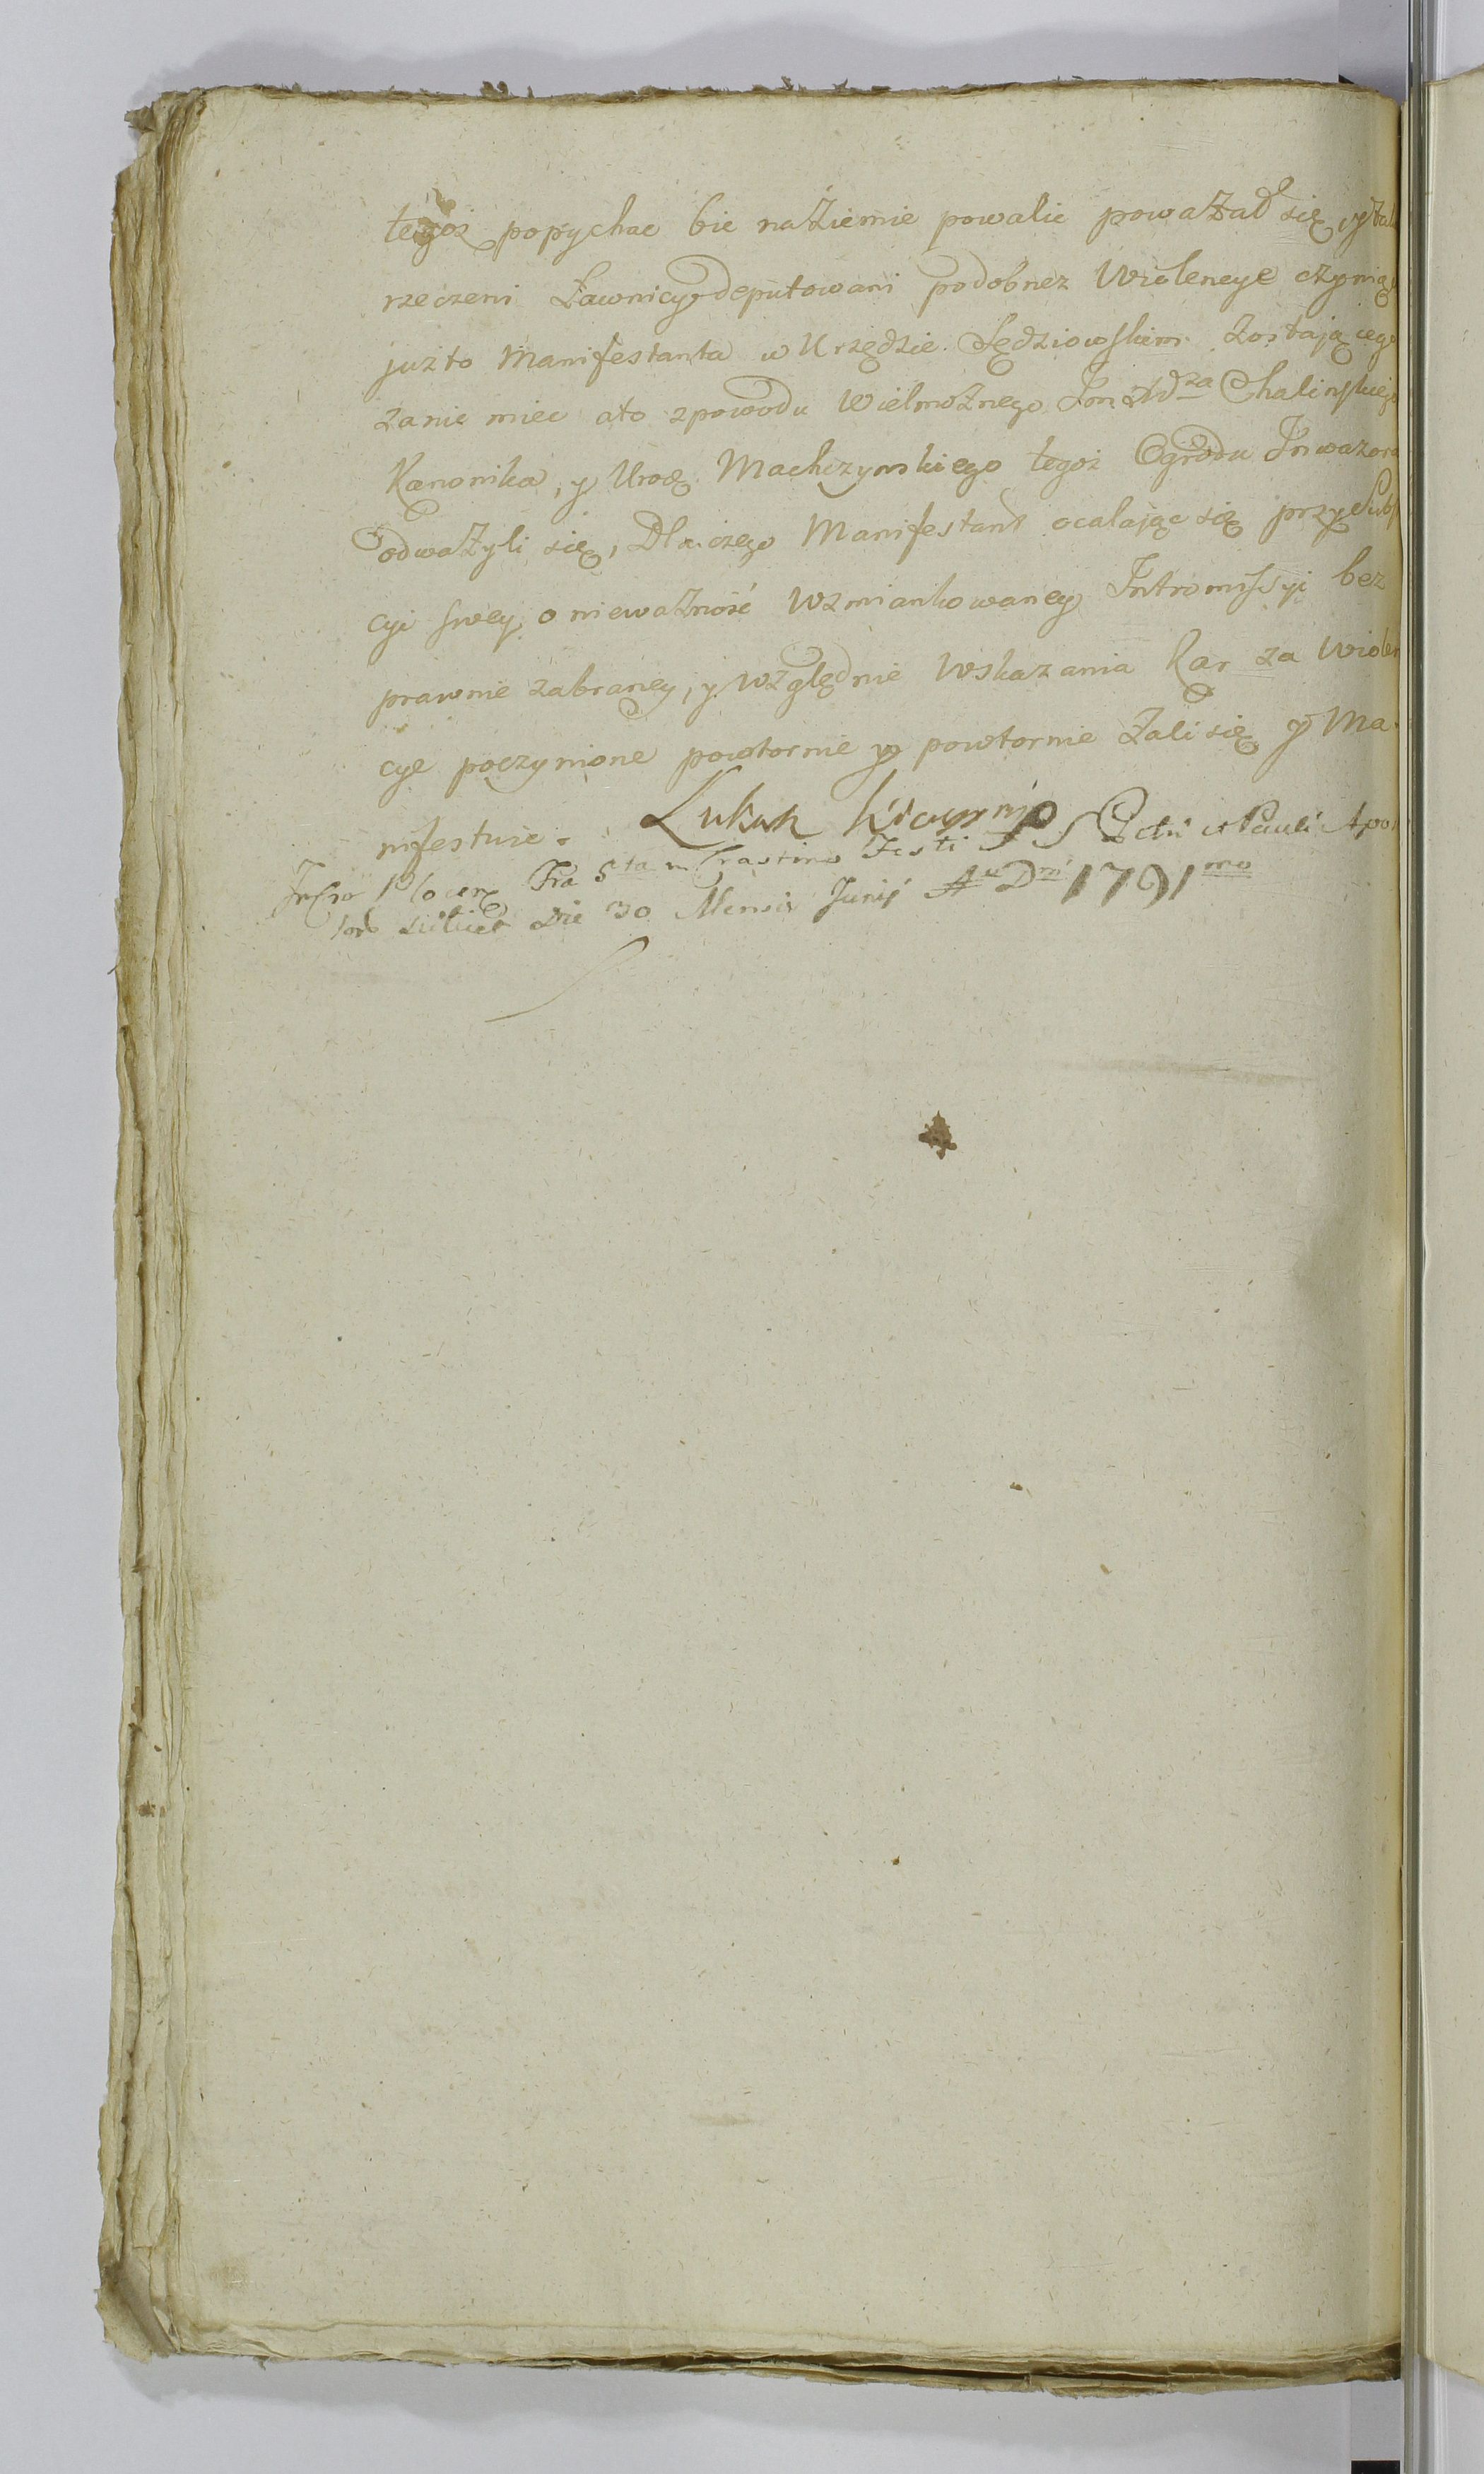 tegoż popychac bic na Ziemie powalic poważał się, y Tak
rzeczeni Ławnicy deputowani podobnez Wiolencye czyniąc
juz to Manifestanta w Urzędzie Sędziowskim zostającego
zanic miec ato zpowodu Wielmożnego Chalinskiego
Kanonika, y Urodz Machczynskiego tegoż Ogrodu Inwazora
odważyli się, Dla czego Manifestant ocalając się przy
cyi swey o nieważność Wzmiankowaney Intromissyi bez
prawnie zabraney, y względnie Wskazania Kar za Wiolen
cye poczynione powtornie y powtornie żali się y Ma
nifestuie. Łukasz
Fra 5ta in Crastino Festi S S Petri et Pauli Apo
scilicet die 30 Mensis Junij Ao Dni 1791mo